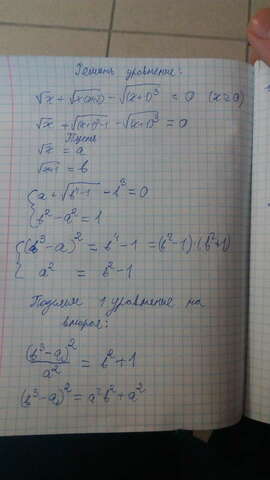 Решить уравнение:
√x + √(x(x+2)) - √(x+1)³ = 0 (x≥0)
√x + √((x+1)²-1) - √(x+1)³ = 0
Пусть
√x = a
√(x+1) = b
{ a + √(b⁴-1) - b³ = 0
{ b² - a² = 1
{ (b³-a)² = b⁴-1 = (b²-1)·(b²+1)
{ a² = b²-1
Поделим 1 уравнение на
второе:
(b³-a)²/a² = b²+1
(b³-a)² = a²b²+a²